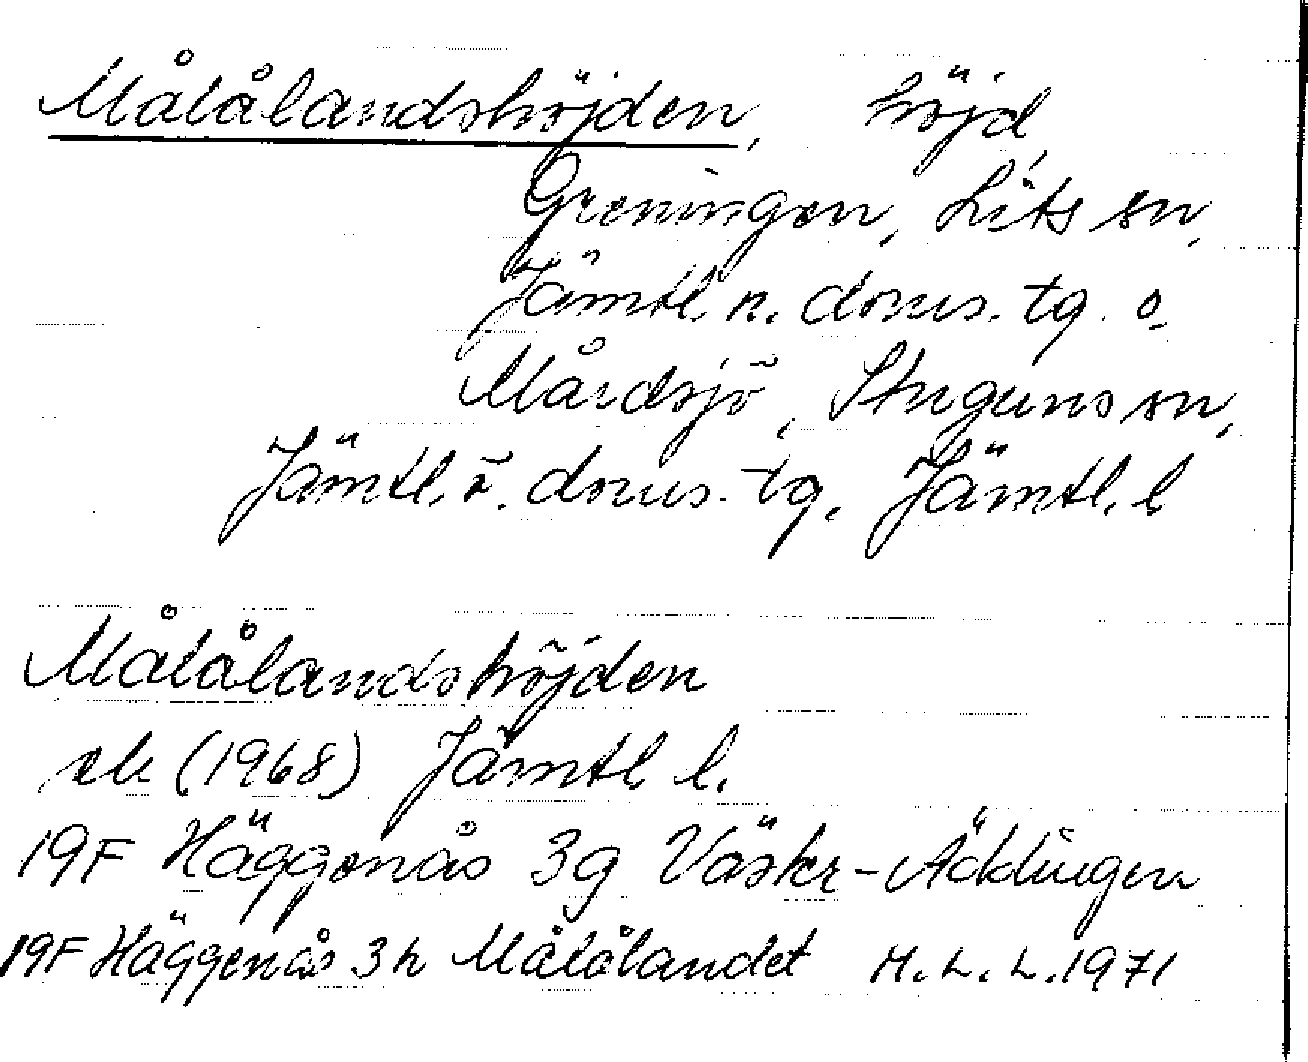 Målålandshöjden, höjd,
Greningen, Lits sn,
Jämtl. n. doms. tg o.
Mårdsjö, Stuguns sn,
Jämtl. ö. doms. tg. Jämtl. l
Målålandshöjden
ek (1968) Jämtl l.
19F Häggenås 3g Väster-Äcklingen
19F Häggenås 3h Målålandet H. L. L. 1971